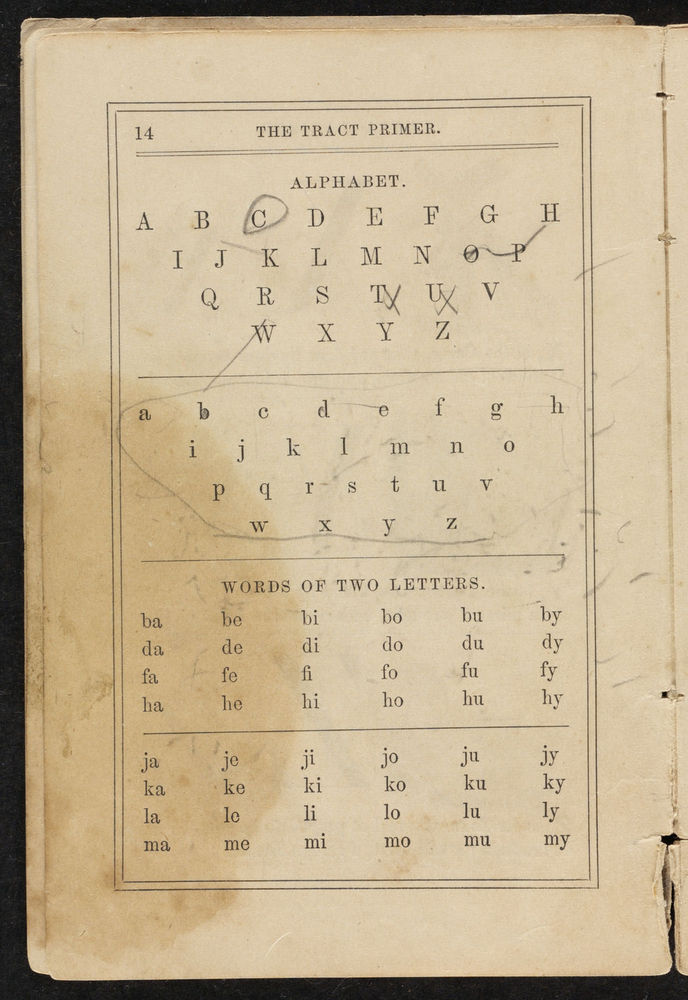 14 THE TRACT PRIMER.
ALPHABET.
A B C D E F G H
I J K L M N O P
Q R S T U V
W X Y Z
a b c d e f g h
i j k l m n o
p q r s t u v
w x y z
WORDS OF TWO LETTERS.
ba be bi bo bu by
da de di do du dy
fa fe fi fo fu fy
ha he hi ho hu hy
ja je ji jo ju jy
ka ke ki ko ku ky
la le li lo lu ly
ma me mi mo mu my